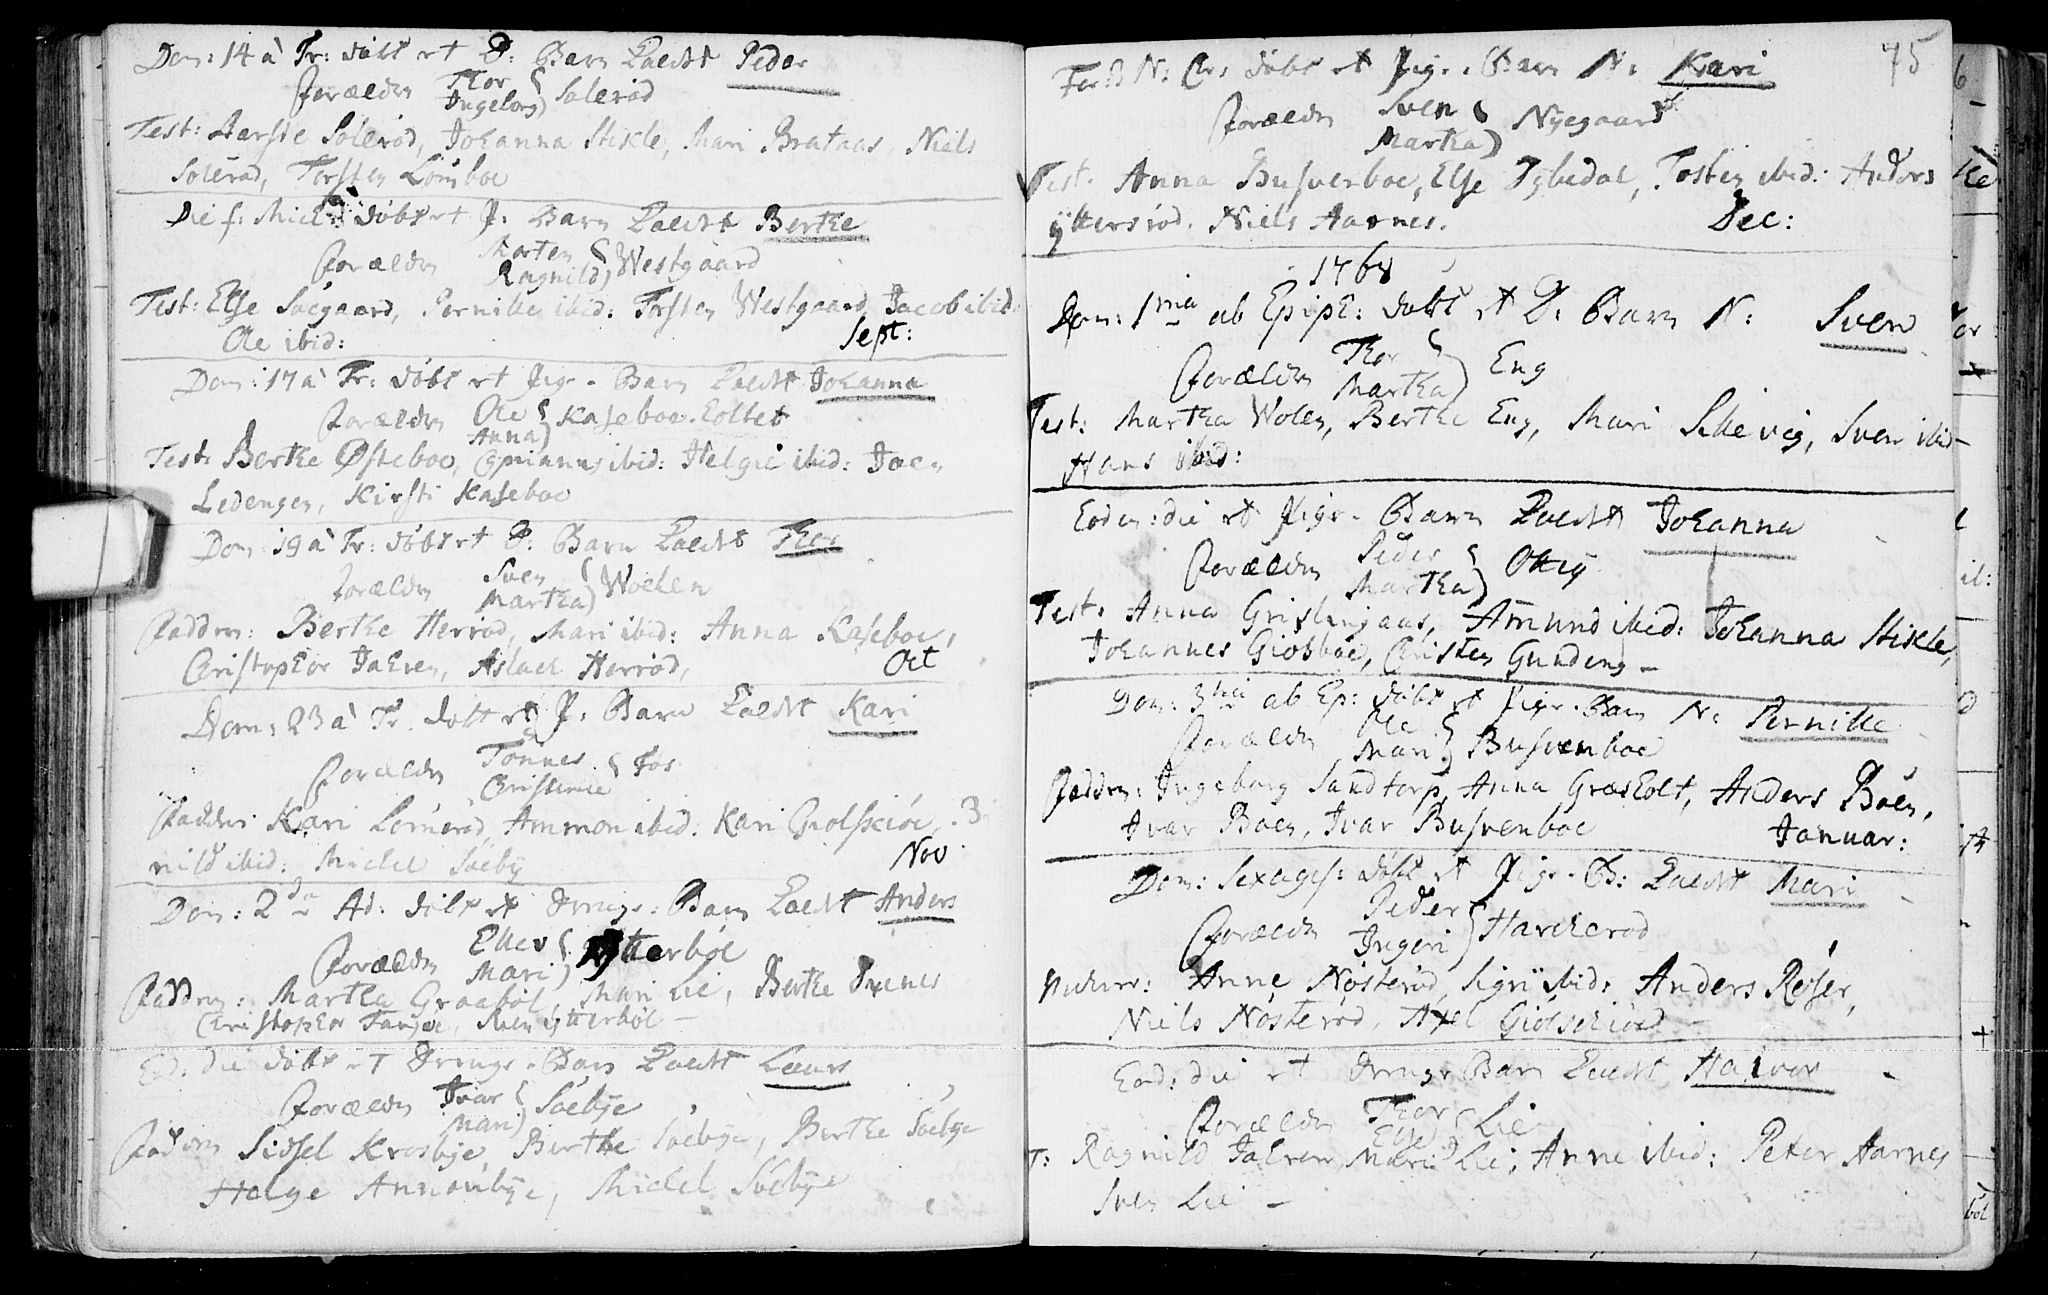 Dom: 14 à Tr: døbt et D: Barn kaldt Peder
Forældre Thor Ingeborg Solerød
Test: Aarste Solerød, Johanna Stikle, Mari Brataas, Niels
Solerød, Torsten Lömboe
Die f: Mich: døbt et P: Barn kaldt Berthe
Forældre Morten Ragnild Westgaard
Test: Else Söegaard, Pernille ibid: Torsten Westgaard, Jacob ibid:
Ole ibid: Sept:
Dom: 17 à Tr: døbt et Pige-Barn kaldt Johanna
Forældre Ole Anna Kaseboe-Eottet
Test: Berthe Østeboe, Cyprianus ibid: Helgie ibid: Joen
Ledengen, Kirsti Kaseboe
Dom: 19 à Tr: døbt et D: Barn kaldt Thor
Forældre Sven Martha Wohlen
Faddere: Berthe Herröd, Mari ibid: Anna Kaseboe,
Christopher Jahren, Aslach Herröd, Oct
Dom: 23 à Tr. døbt et P: Barn kaldt Kari
Forældre Tönnes Christence Fos
Fadder: Kari Lömeröd, Ammon ibid: Kari Giolskiöe,
nild ibid: Michel Söeby Nov
Dom: 2da Ad: døbt et Drenge-Barn kaldt Anders
Forældre Ellev Mari ytterböl
Faddere: Martha Graaböl, Mari Lie, Berthe
Christopher Tangen, ytterböl –
Eod: die døbt et Drenge-Barn kaldt Laurs
Forældre Ivar Mari Söebye
Faddere Sidsel Krosbye Berthe Söebye, Berthe Söebye
Helge Annonbye, Michel Söebye
75
Fer: 2 N: Chr: døbt et Pige-Barn N: Kari
Forældre Sven Martha Nyegaard
Test: Anna Busverboe, Else Tybedal, Tosten ibid: Anders
yttersröd. Niels Aarnes. Dec:
1768
Dom: 1ma ab Epiph: døbt et D: Barn N: Sven
Forældre Thor Martha Eng
Test: Martha Wolen, Berthe Eng, Mari Sillevig, Sven ibid-
Hans ibid:
Eodem: die et Pige-Barn kaldt Johanna
Forældre Peder Martha Ottey
Test: Anna Grislingaas, Amund ibid: Johanna Stikle,
Johannes Giosboe, Christen Gundeng –
Dom: 3tia ab Ep: døbt et Pige-Barn N: Pernille
Forældre Ole Mari Busvenboe
Faddere: Ingeborg Sandtorp, Anna Græsholt, Anders Boen,
Ivar Boen, Ivar Busvenboe Januar:
Dom: Sexages: døbt et Pige-B: kaldt Mari
Forældre Peder Ingeri Harcheröd
Anne Nösteröd, Sigri ibid: Anders Röser,
Niels Nösteröd, Axel Giölschiöed –
Eod: die et Drenge Barn kaldt Halvor –
Forældre Thor Else Lie
T: Ragnild Jahren, Mari Lie, Anne ibid: Peter Aarnes
Sven Lie –